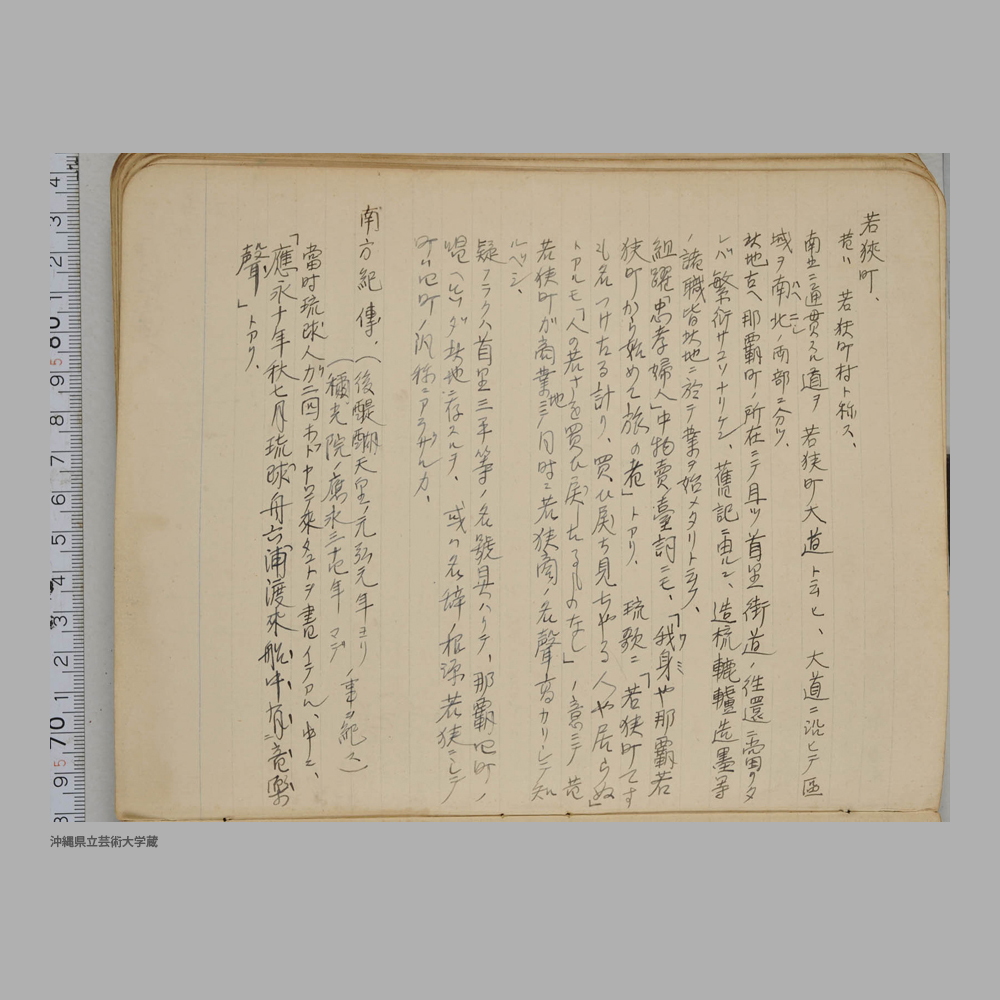 若狭町、
昔ハ 若狭町村ト称ス、
南北ニ通貫スル道ヲ 若狭町大道 ト云ヒ、大道ニ沿ヒテ區
域ヲ南北ノ両部ニ分ツ、
此地古ヘ那覇町ノ所在ニテ且ツ首里街道ノ往還ニ當リタ
レバ繁衍サコソナリケン、舊記ニ由ルニ、造梳轆轤造墨等
ノ諸職皆此地ニ於テ業ヲ始メタリト云フ、
組躍「忠孝婦人」中物賣臺詞ニモ、「我身や那覇若
狭町から始めて旅の者」トアリ、 琉歌ニ「若狭町てす
も名つけたる計り、買ひ戻ち見ちやる人や居らぬ」
トアルモ「人の若さを買ひ戻したるものなし」ノ意ニテ 昔
若狭町が商業地ニテ同時ニ若狭商ノ名聲高カリシテ知
ルベシ、
疑フラクハ首里三平等ノ名號具ハリテ、那覇四町ノ
唱ヘ此地ニ存スルヲ、 或ハ名稱ノ根源若狭ニシテ
町ハ四町ノ汎称ニアラザルカ、
南方紀傳、(後醍醐天皇ノ元弘元年ヨリ
稱光院ノ應永二十七年マデノ事ヲ紀ス)
當时琉球人ガ二四ホドヤマデ來タコトヲ書イテアル、中ニ、
「應永十年秋七月琉球舟六浦渡來船中有音樂
聲」トアリ、
4 3 2 1 60 9 8 7 6 5 4 3 2 1 70 9 8
沖縄県立芸術大学蔵